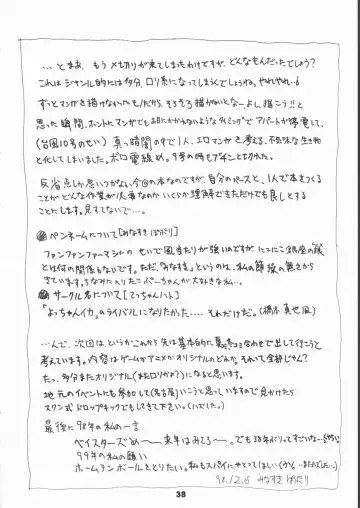 …とまあ、もう〆切りが来てしまったわけですが、どんなもんだったでしょう?
これはジャンル的には多分、ロリ系になってしまうんでしょうね。やれやれ…
ずっとマンガを描けなかったもんだから、そろそろ描かないとなー、よし、描こう!!と
思った瞬間、ホントにマンガでもお目にかかれないようなタイミングでアパートが停電して、
(台風10号のせい) 真っ暗闇の中で1人、エロマンガを考える、不気味な生き物
と化してしまいました。ボロ電線め。9号の時もアンテナとばされた。
反省点しか思いつかない今回の本なのですが、自分のペースと、1人で本をつくる
ことがどんな作業が必要なのかいくらか理解できただけでも良しとする
ことにします。見すてないで…。
◎ペンネームについて【みなすき ぽぷり】
ファンファンファーマシィーのせいで風当たりが強いのですが、にこにこ銀座の娘
とは何の関係もないです。ただ、「みなすき」というのは、私の節操の無さから
きています。ちなみにのりたこぷーちゃんが大好きな私…。
◎サークル名について【てっちゃんハト】
「よっちゃんイカ」のライバルになりたかった……それだけだ。(橋本真也風)
…んで、次回は、というかこれから先は基本的に
考えています。内容はゲームかアニメかオリジナルのどれか。それって全部じゃん?
たっ、多分またオリジナル(またロリかよ?)になると思います。
地元のイベントにも参加して(名古屋)いこうと思っていますので見かけたら
スワン式ドロップキックでもして下さい。(ハズした。)
最後に98年の私の一言
ベイスターズめ〜〜 来年はみてろ〜。でも38年ぶりってすごいな…
99年の私の願い
ホームランボールをとりたい。私もスパイにやとってほしい
98.12.6 みなすき ぽぷり
38